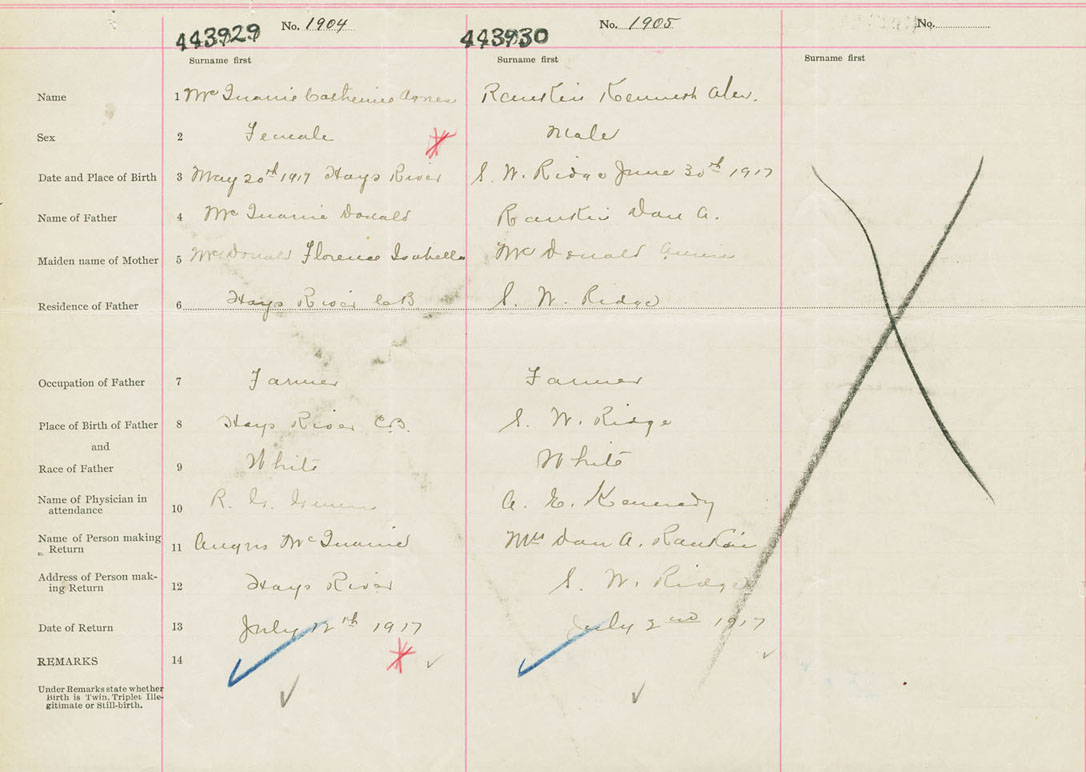 443929 No. 1904 443930 No. 1905 No.
Surname first Surname first Surname first
Name 1 Catherine Agnes Rankin Kenneth Alex.
Sex 2 Female Male
Date and Place of Birth 3 May 20th 1917 Hays River S. W. Ridge June 30th 1917
Name of Father 4 Donald Rankin Dan A.
Maiden name of Mother 5 McDonald Florence Isabella McDonald Annie
Residence of Father 6 Hays River C.B. S. W. Ridge
Occupation of Father 7 Farmer Farmer
Place of Birth of Father 8 Hays River C.B. S. W. Ridge
and
Race of Father 9 White White
Name of Physician in
attendance 10 R. A. E. Kennedy
Name of Person making
Return 11 Angus Mrs Dan A. Rankin
Address of Person mak-
ing Return 12 Hays River S. W. Ridge
Date of Return 13 July 12th 1917 July 2nd 1917
REMARKS 14
Under Remarks state whether
Birth is Twin, Triplet Ille-
gitimate or Still-birth.